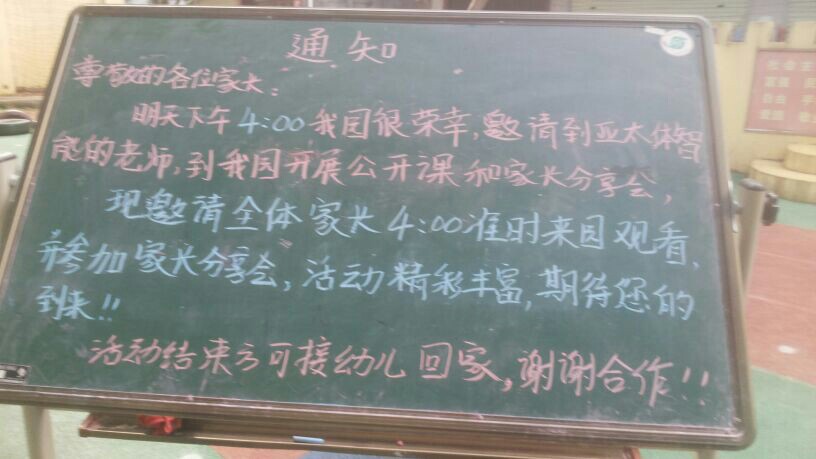 通知
尊敬的各位家长:
明天下午4:00我园很荣幸,邀请到亚太体智
能的老师,到我园开展公开课和家长分享会,
现邀请全体家长4:00准时来园观看,
并参加家长分享会,活动精彩丰富,期待您的
到来!!
活动结束方可接幼儿回家,谢谢合作!!